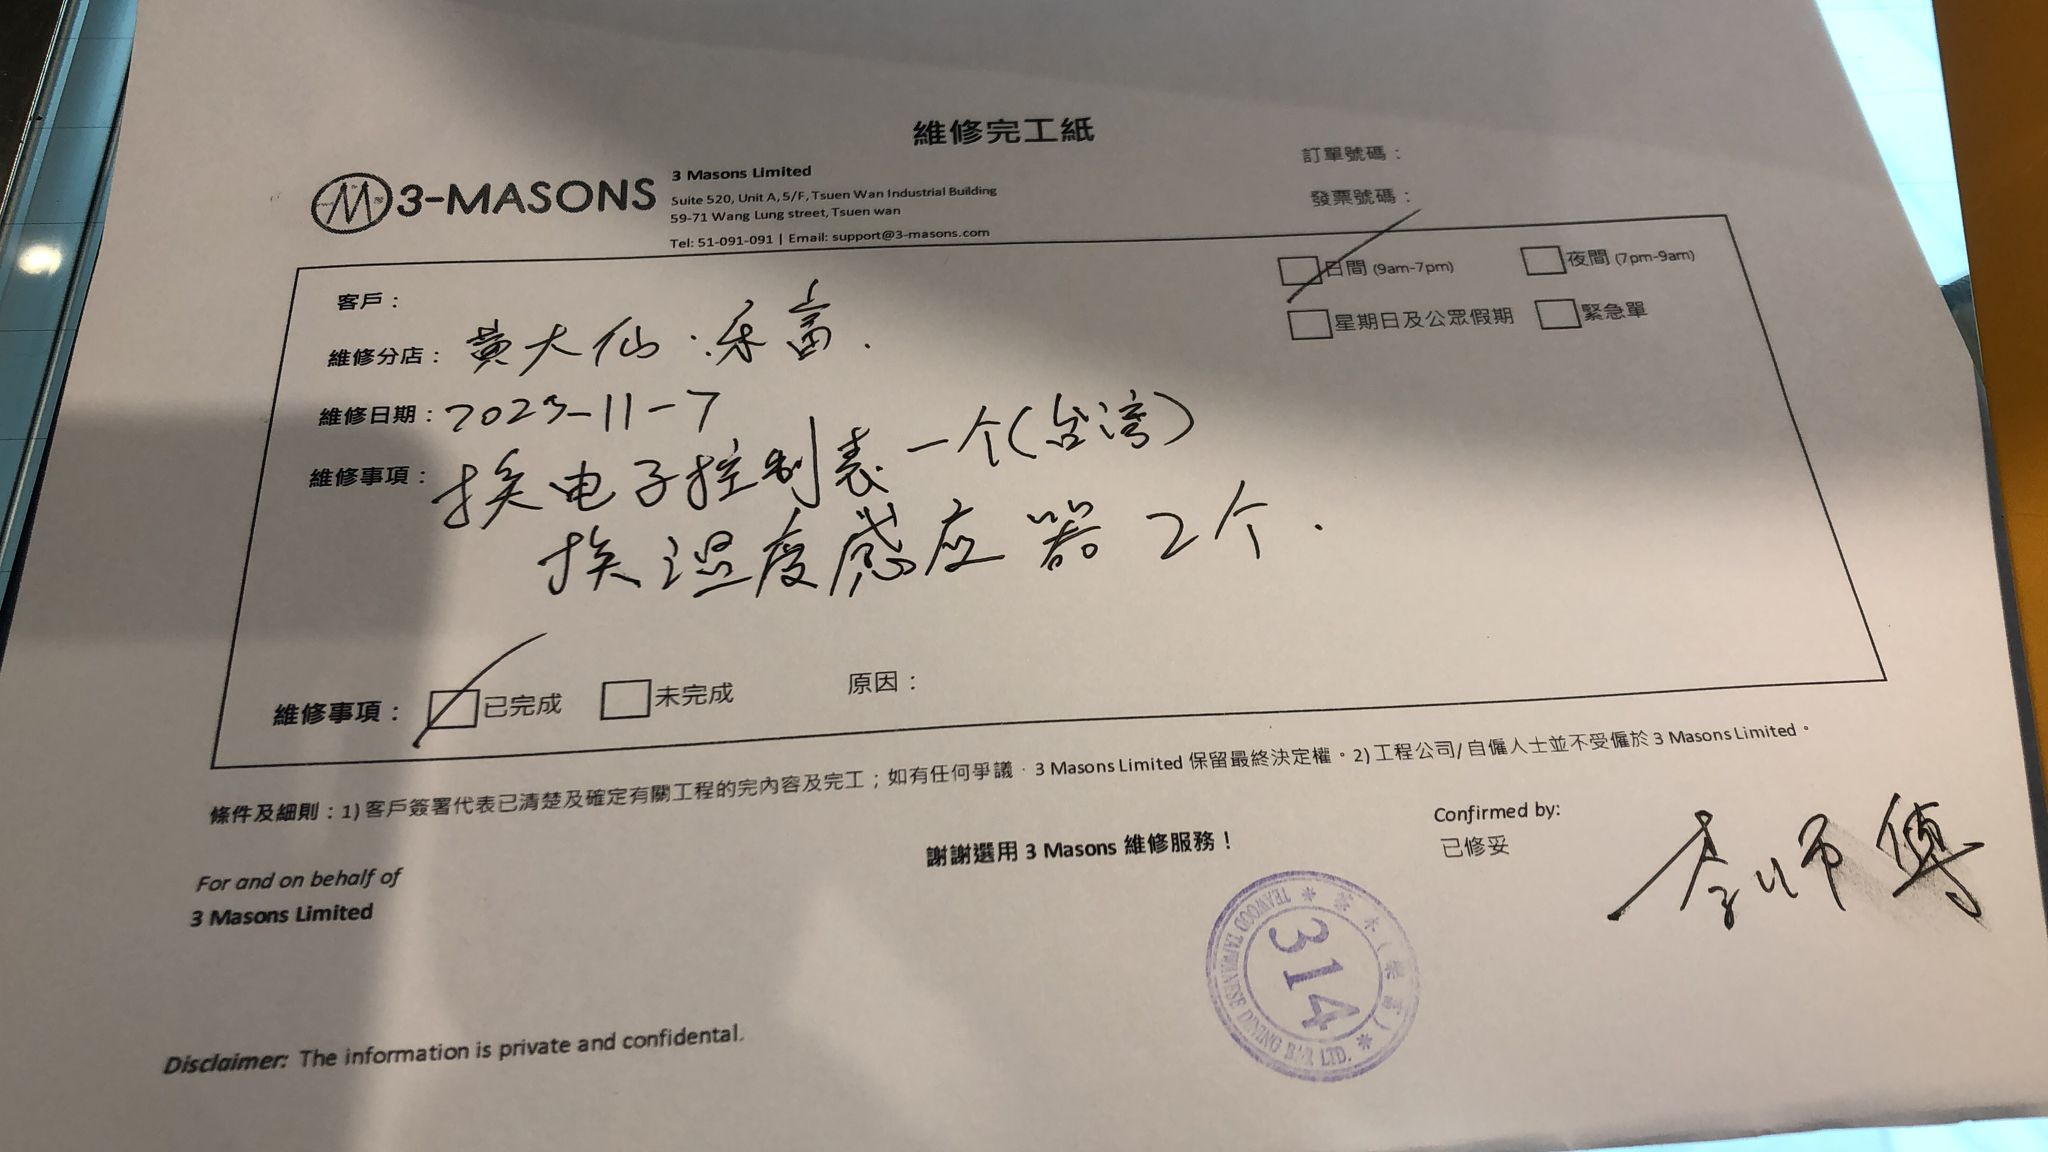 維修完工紙
訂單號碼：
發票號碼：
3-MASONS
3 Masons Limited
Suite 520, Unit A, 5/F, Tsuen Wan Industrial Building
59-71 Wang Lung street, Tsuen wan
Tel: 51-091-091 | Email: support@3-masons.com
日間 (9am-7pm) 夜間 (7pm-9am)
星期日及公眾假期 緊急單
客戶：
維修分店：黄大仙·乐富.
維修日期：2023-11-7
維修事項：换电子控制表一个(台湾)
换温度感应器2个.
維修事項： 已完成 未完成 原因：
條件及細則：1) 客戶簽署代表已清楚及確定有關工程的完內容及完工；如有任何爭議，3 Masons Limited 保留最終決定權。2) 工程公司/自僱人士並不受僱於 3 Masons Limited。
謝謝選用 3 Masons 維修服務！
Confirmed by:
已修妥
李师傅
For and on behalf of
3 Masons Limited
茶木(樂富)
314
TEAWOOD TAIWANESE DINING BAR LTD.
Disclaimer: The information is private and confidental.